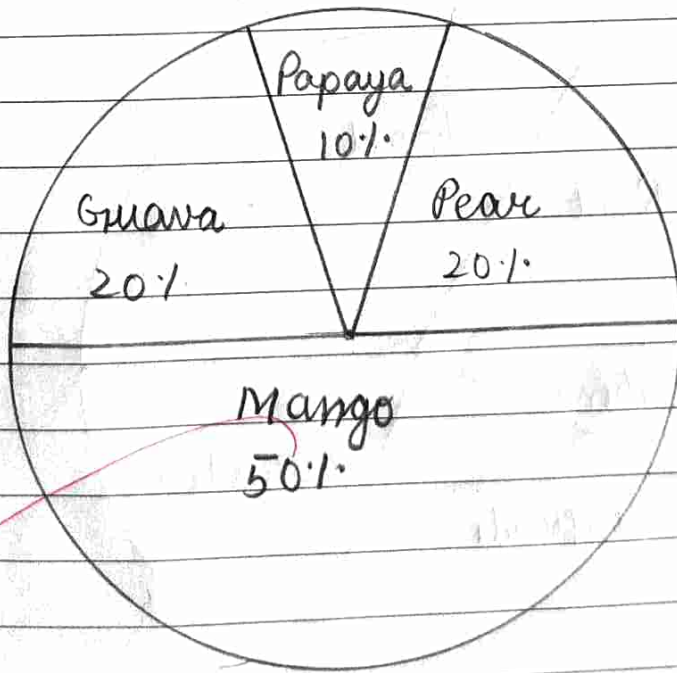 Papaya
10%
Guava
20%
Pear
20%
Mango
50%